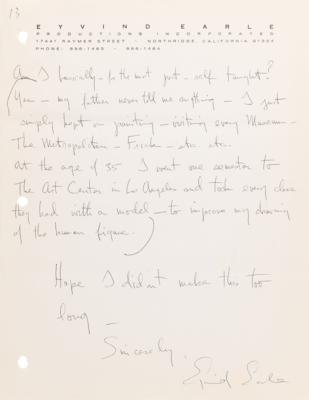 13
EYVIND EARLE
PRODUCTIONS INCORPORATED
17441 RAYMER STREET - NORTHRIDGE, CALIFORNIA 91324
PHONE: 886-1483 - 886-1484
Am I basically - for the most part - self taught?
Yes - my father never told me anything - I just
simply kept on painting - visiting every Museum -
The Metropolitan - Frick - etc. etc.
At the age of 35 I went one semester to
The Art Center in Los Angeles and took every class
they had with a model - to improve my drawing
of the human figure.
Hope I didn't make this too
long -
Sincerely,
Eyvind Earle